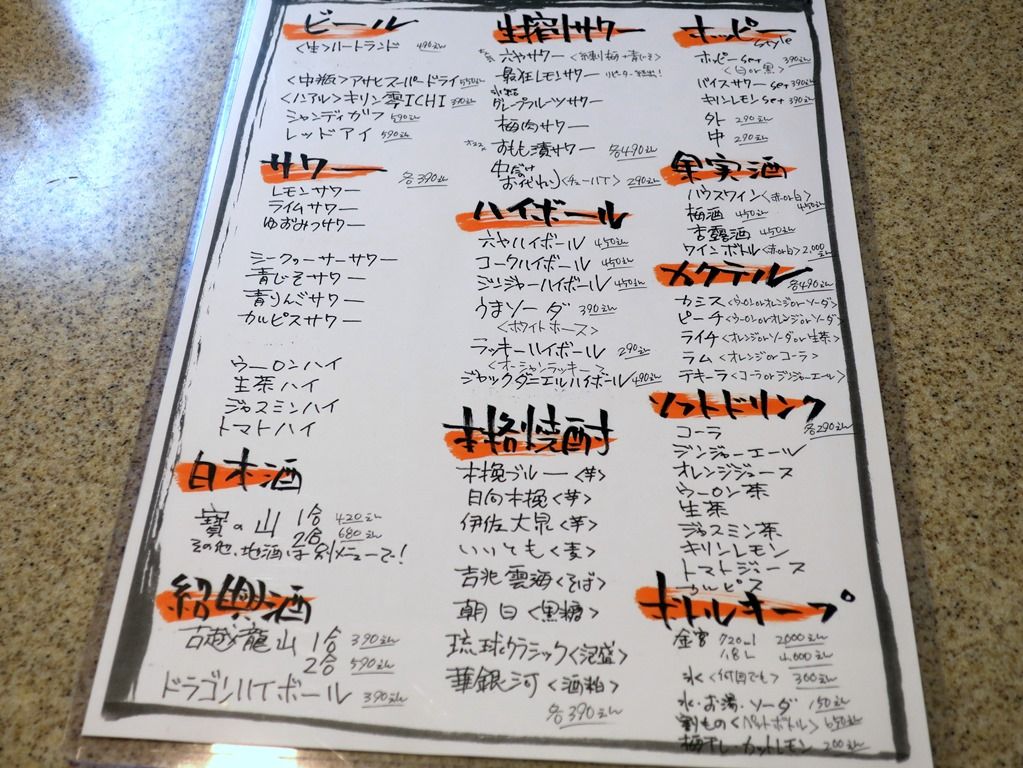 ビール
<生>ハートランド 490えん
<中瓶>アサヒスーパードライ 550えん
<ノンアル>キリン零ICHI 390えん
シャンディガフ 590えん
レッドアイ 590えん
サワー 各390えん
レモンサワー
ライムサワー
ゆずみつサワー
シークヮーサーサワー
青じそサワー
青りんごサワー
カルピスサワー
ウーロンハイ
生茶ハイ
ジャスミンハイ
トマトハイ
日本酒
寶の山 1合 420えん
2合 680えん
その他、地酒は別メニューで!
紹興酒
古越龍山 1合 390えん
2合 590えん
ドラゴンハイボール 390えん
生搾りサワー
六ヤサワー
最狂レモンサワー リピーター続出!
氷結グレープフルーツサワー
梅肉サワー
すもも漬サワー 各490えん
中だけお代わり<チューハイ> 290えん
ハイボール
六ヤハイボール 450えん
コークハイボール 450えん
ジンジャーハイボール 450えん
うまソーダ 390えん
<ホワイトホース>
ラッキーハイボール 290えん
<オーシャンラッキー>
ジャックダニエルハイボール 490えん
本格焼酎
木挽ブルー<芋>
日向木挽<芋>
伊佐大泉<芋>
いいとも<麦>
吉兆雲海<そば>
朝日<黒糖>
琉球クラシック<泡盛>
華銀河<酒粕>
各390えん
ホッピー style
ホッピーset 390えん
<白or黒>
バイスサワーset 390えん
キリンレモンset 390えん
外 290えん
中 290えん
果実酒
ハウスワイン<赤or白> 450えん
梅酒 450えん
杏露酒 450えん
ワインボトル<赤or白> 2,000えん
カクテル 各490えん
カシス<ウーロンorオレンジorソーダ>
ピーチ<ウーロンorオレンジorソーダ>
ライチ<オレンジorソーダor生茶>
ラム<オレンジorコーラ>
テキーラ<コーラorジンジャーエール>
ソフトドリンク 各290えん
コーラ
ジンジャーエール
オレンジジュース
ウーロン茶
生茶
ジャスミン茶
キリンレモン
トマトジュース
カルピス
ボトルキープ
金宮 720ml 2000えん
1.8L 4,000えん
氷<何回でも> 300えん
水・お湯・ソーダ 150えん
割もの<ペットボトル> 650えん
梅干し・カットレモン 200えん